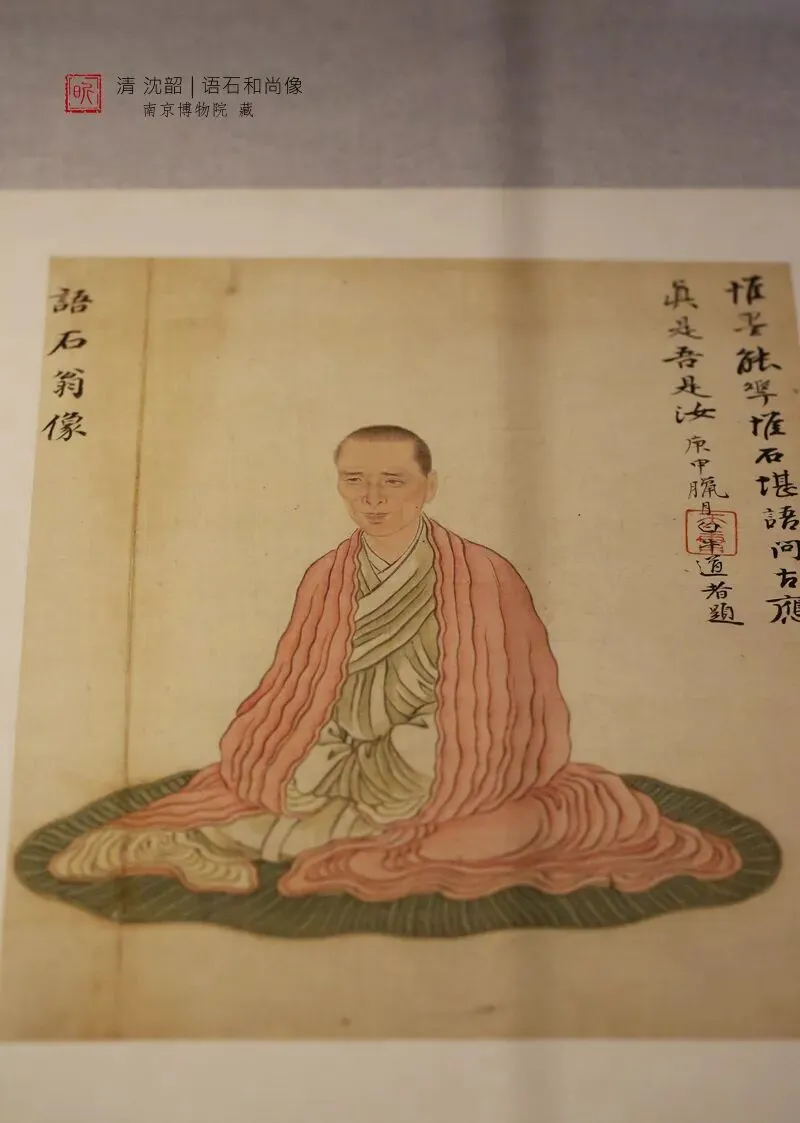 清 沈韶 | 语石和尚像
南京博物院 藏
惟能惟石堪語問古應
真是吾是汝
庚申臘月道者題
語石翁像